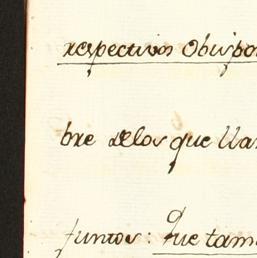 respectivos Obispo
bre delos que lla
juntos: Que tam